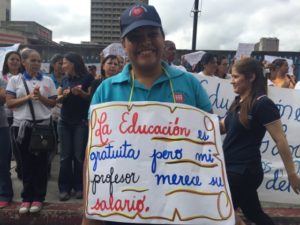 La Educación es
gratuita pero mi
profesor merece su
salario.